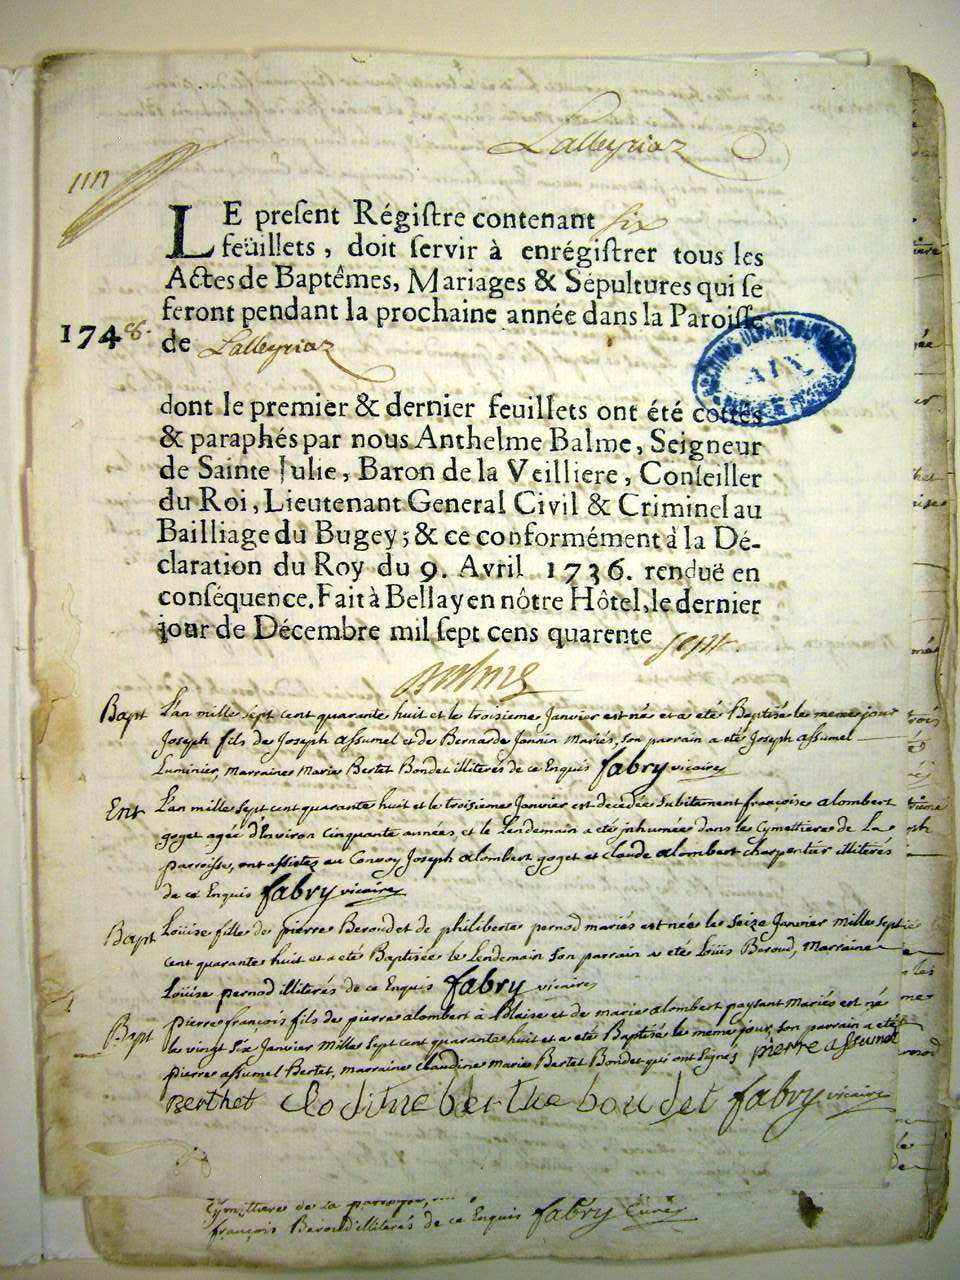 Lalleyriaz
LE present Régistre contenant six
feüillets, doit servir à enrégistrer tous les
Actes de Baptêmes, Mariages & Sépultures qui se
feront pendant la prochaine année dans la Paroisse
1748. de Lalleyriaz
ARCHIVES DEPARTEMENTALES
AIN
dont le premier & dernier feuillets ont été cottés
& paraphés par nous Anthelme Balme, Seigneur
de Sainte Julie, Baron de la Veilliere, Conseiller
du Roi, Lieutenant General Civil & Criminel au
Bailliage du Bugey; & ce conformément à la Dé-
claration du Roy du 9. Avril 1736. renduë en
conséquence. Fait à Bellay en nôtre Hôtel, le dernier
jour de Décembre mil sept cens quarente sept.
Balme
Bapt L'an mille sept cent quarante huit et le troisieme Janvier est né et a eté Baptisé le meme jour
Joseph fils de Joseph assumel et de Bernarde Jannin Mariés, son parrain a eté Joseph assumel
Luminier, Marraine Marie Bertet Bondet illiterés de ce Enquis fabry vicaire
Ent L'an mille sept cent quarante huit et le troisieme Janvier est decedée subitement françoise alombert
goget ageé d'Environ Cinquante années et le Lendemain a eté inhumée dans le Cymettiere de La
parroisse, ont assistez au Convoy Joseph alombert goget et claude alombert charpentier illiterés
de ce Enquis fabry vicaire
Bapt Loüise fille de pierre Beroud et de philiberte pernod mariés est née le seize Janvier mille sept
cent quarante huit et a eté Baptisée le Lendemain son parrain a eté Loüis Beroud, Marraine
Loüise pernod illiterés de ce Enquis fabry vicaire
Bapt pierre françois fils de pierre alombert à Blaise et de marie alombert paysant Mariés est né
le vingt six Janvier Mille sept cent quarante huit et a eté Baptisé le meme jour, son parrain a eté
pierre assumel Bertet, marraine claudine Marie Bertet Bondet qui ont signés pierre assumel
Berthet Clodine berthe boudet fabry vicaire
Cymettiere de la parroisse,
françois Beroud illiterés de ce Enquis fabry Curé